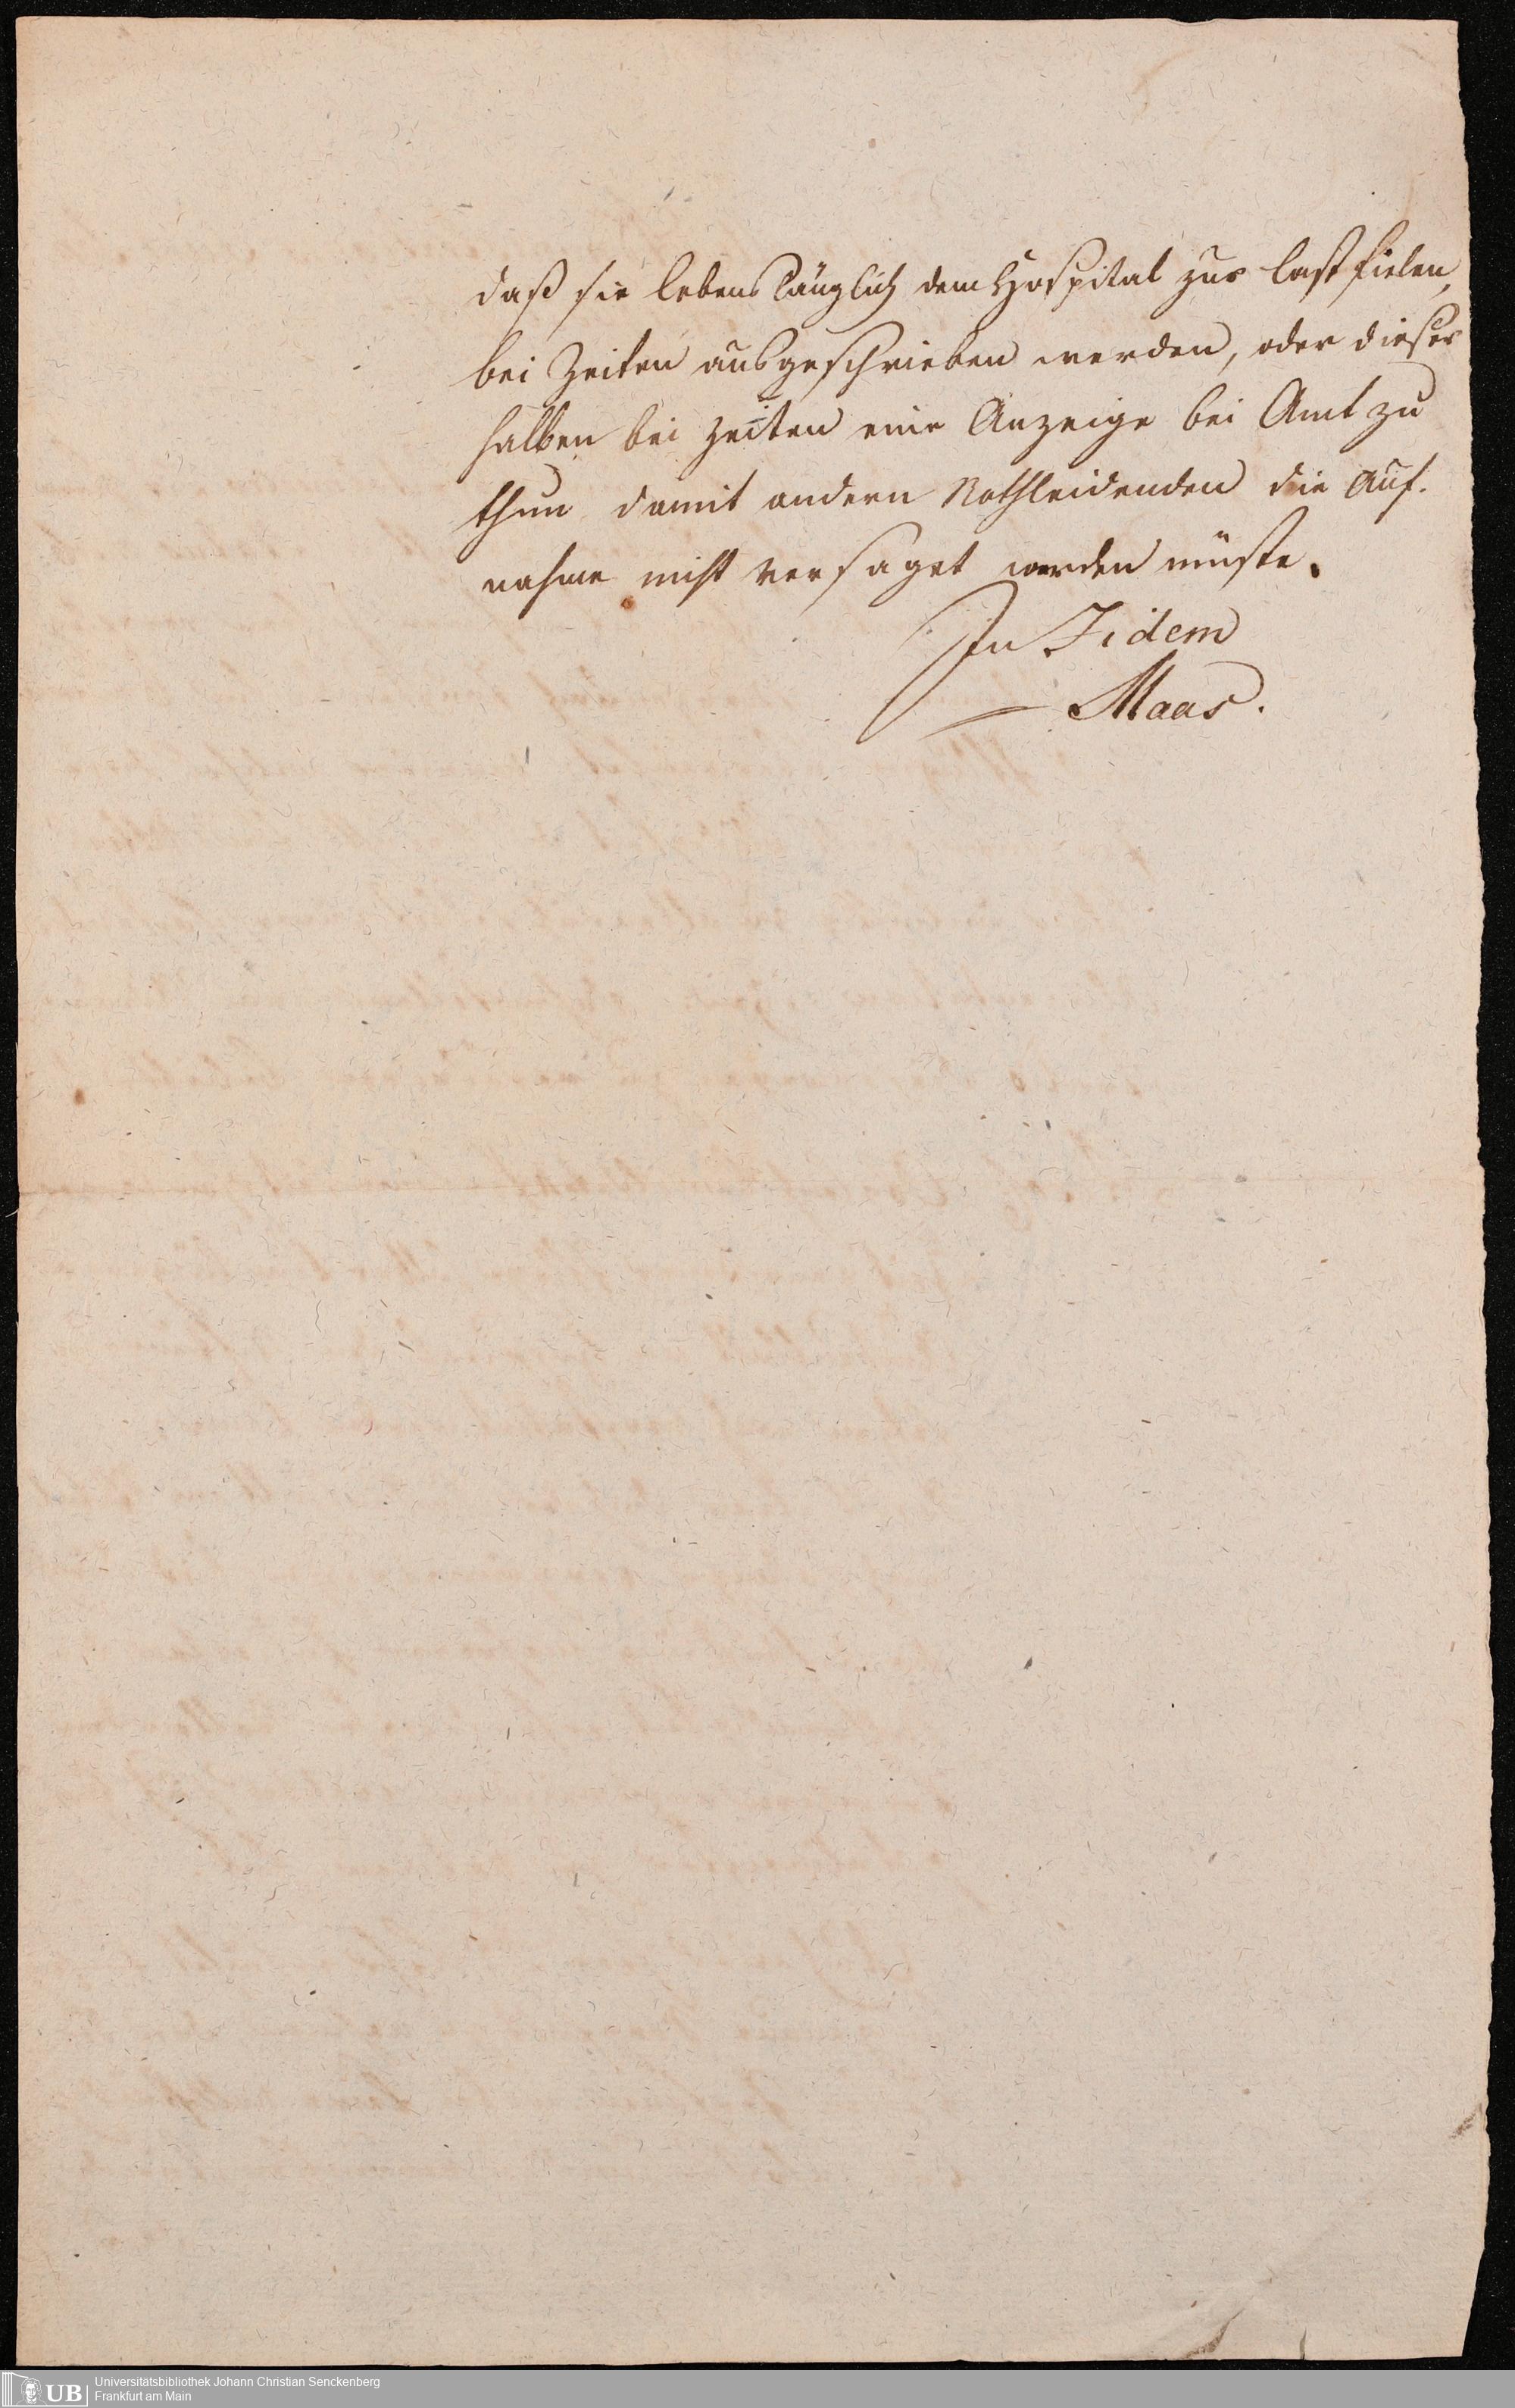 daß sie lebenslänglich dem Hospital zur last fielen,
bei Zeiten ausgeschrieben werden, oder dieser
halben bei Zeiten eine Anzeige bei Amt zu
thun damit andern Nothleidenden die Auf-
nahme nicht versaget werden müste.
In Fidem
Maas.
UB
Universitätsbibliothek Johann Christian Senckenberg
Frankfurt am Main